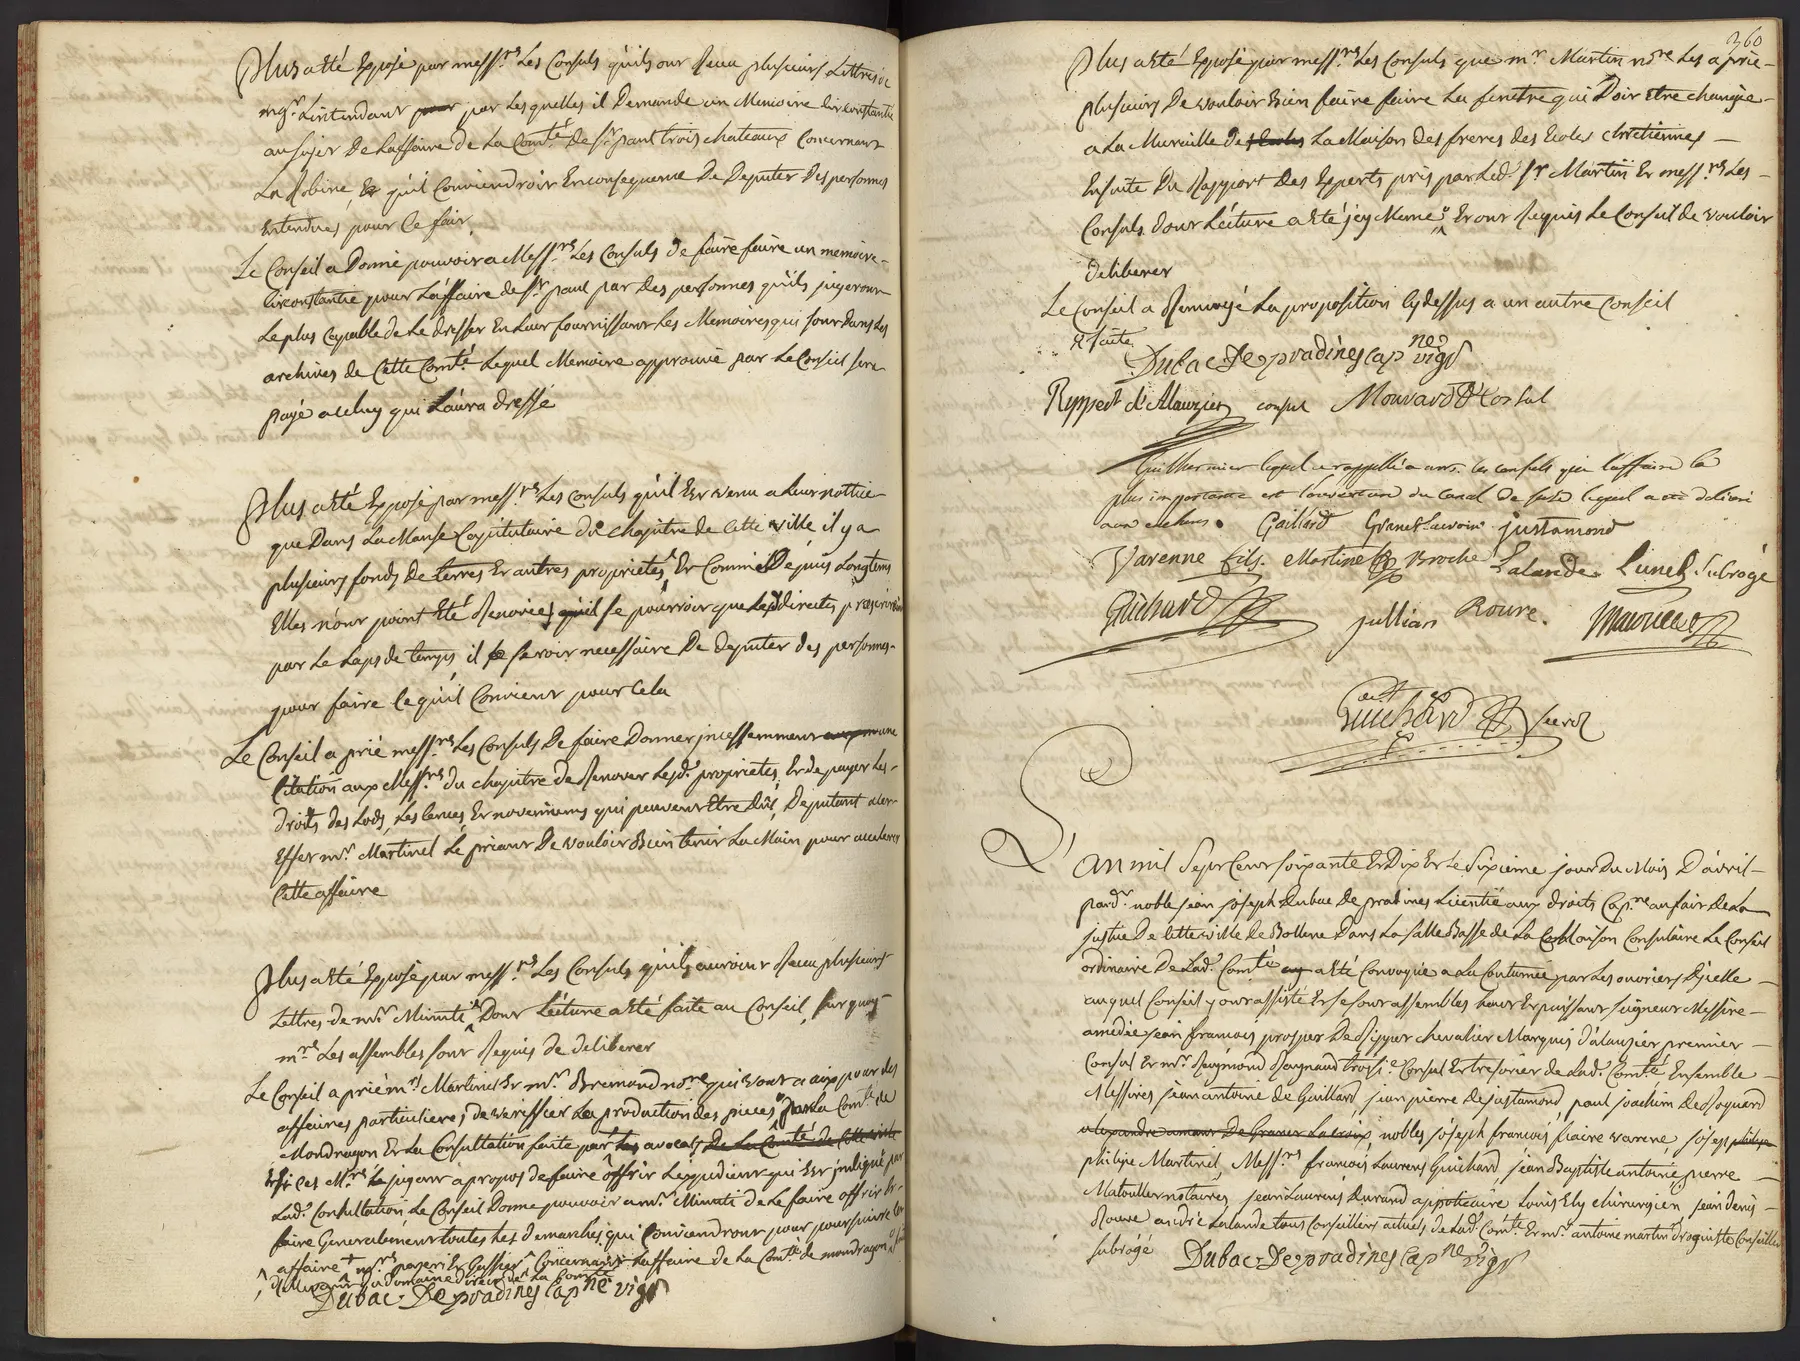 Plus a été Exposé par mess.rs Les Consuls qu'ils ont Receu plusieurs Lettres de
mgr. Lintendant par Lesquelles il Demande un Memoire circonstantié
au sujet De Laffaire de La Com.té De St. paul trois chateaux Concernant
La Robine, Et qu'il Conviendroit En consequence De Deputer Des personnes
Entendues pour Ce fair,
Le Conseil a Donné pouvoir a Mess.rs Les Consuls de faire faire un memoire
Circonstantié pour Laffaire de St. paul par Des personnes qu'ils jugeront
Le plus Capable de Le dresser En Leur fournissant Les Memoires qui sont Dans Les
archives de Cette Com.té Lequel Memoire approuvé par Le Conseil sera
payé a celuy qui L'aura dressé
Plus a été Exposé par mess.rs Les Consuls qu'il Est venu a Leur nottice
que Dans La Manse Capitulaire du chapitre de Cette ville il y a
plusieurs fonds de terres Et autres proprietés, Et Comme Depuis Longtems
Elles n'ont point Eté Renovées, qu'il se pourroit que Les directes
par Le Laps de temps, il seroit necessaire De Deputer des personnes
pour faire Ce qu'il Convient pour Cela
Le Conseil a prié mess.rs Les Consuls De faire Donner jncessemment une
Citation aux Mess.rs du chapitre de Renover Lesd. proprietés, Et de payer Les
droits des Lods, Les Censes, Et qui peuvent Etre Dûs, Deputant a cet
Effet mr. Martinel Le priant De vouloir Bien tenir La Main pour accelerer
Cette affaire
Plus a été Exposé par mess.rs Les Consuls qu'ils auroint Receu plusieurs
Lettres de mr. Minuti Dont Lécture a été faite au Conseil, sur quoy
m.rs Les assemblés sont Requis de deliberer
Le Conseil a prié mr. Martinel Et mr. Bremond no.re qui vont a aix pour des
affaires particulieres, de veriffier La production des pieces par La Com.té de
Mondragon Et La Consultation faite par Les avocats de La Com.té de Cette ville
Et si Ces M.rs Le jugent a propos de faire offrir Lexpedient qui Est jndiqué par
Lad. Consultation, Le Conseil Donne pouvoir a mr. Minuti de Le faire offrir Et
faire Generalement toutes Les demarches qui Conviendront pour poursuivre Cet
affaire Concernant Laffaire de La Com.té de mondragon
Dubac De pradines Cap.ne vig.r
360
Plus a été Exposé par mess.rs Les Consuls que mr. Martin no.re Les a prié
plusieurs De vouloir Bien faire faire La fenetre qui Doit Etre changée
a La Muraille de La Maison des freres des Ecoles chretiennes
Ensuite Du Rapport Des Experts pris par Led. Sr. Martin Et mess.rs Les
Consuls dont Lécture a été jcy Meme Et ont Requis Le Conseil de vouloir
deliberer
Le Conseil a Renvoyé La proposition Cy dessus a un autre Conseil
Dubac De pradines Cap.ne vig.r
Ryppert d'Alauzier consul Monvard Consul
Guilhermier lequel a rappellé a mrs. les consuls que l'affaire la
plus importante est l'ouverture du canal de lequel a été deliberé
Gaillard Granet Lacroix justamond
Varenne fils. Martinel Broche Lalande Lunel subrogé
Guichard jullian Roure.
Guichard secr.
L'an mil sept Cent soixante Et Dix Et Le sixieme jour Du Mois D'avril
pard.t noble jean joseph Dubac De pradines Licentié aux droits Cap.ne au fait de La
justice De Cette ville de Bollene Dans La salle Basse de La Maison Consulaire Le Conseil
ordinaire De Lad. Com.té a été Convoqué a La Coutumée par Les ouvriers Djcelle
auquel Conseil y ont assisté Et se sont assemblés haut Et puissant seigneur Messire
amedée jean francois prosper De Rippert chevalier Marquis d'alauzier premier
Consul Et mr. Raymond Raynaud trois.e Consul Et tresorier de Lad. Com.té Ensemble
Messires jean antoine de Gaillard, jean pierre de justamond, paul joachim de Roquard
alexandre amant De Granet Lacroix, nobles joseph francois fiaire varene, joseph philipe
philipe Martinel, Mess.rs francois Laurens Guichard, jean Baptiste antoine, pierre
Matouller notaires, jean Laurens Durand appoticaire Louis Ely chirurgien jean denis
Roure andré Lalande tous Conseillers actuels de Lad. Com.té Et mr. antoine martin droguiste Conseiller
subrogé
Dubac De pradines Cap.ne vig.r